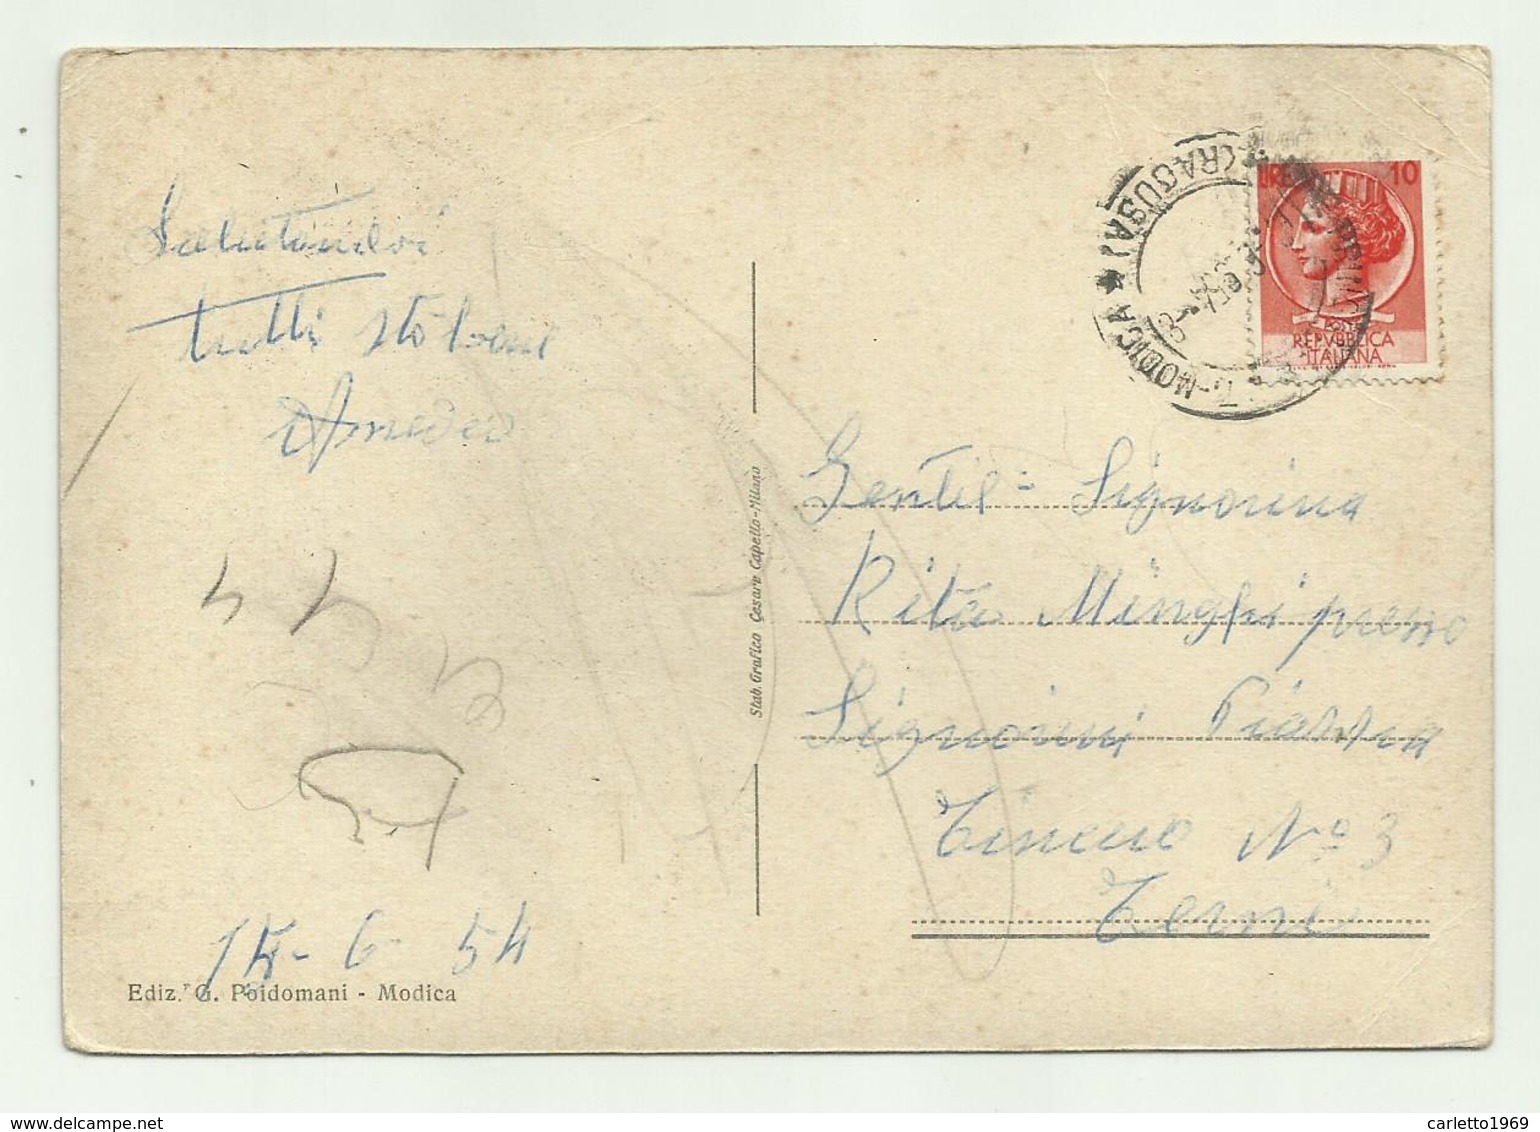 Salutandovi
tutti sto bene
Amedeo
14-6 54
Ediz. G. Poidomani - Modica
Stab. Grafico Cesare Capello-Milano
MODICA * (RAGUSA)
LIRE 10
POSTE
REPVBBLICA
ITALIANA
Gentil= Signorina
Rita Minghi presso
Signorini Piazza
N° 3
Terni
www.delcampe.net
carletto1969